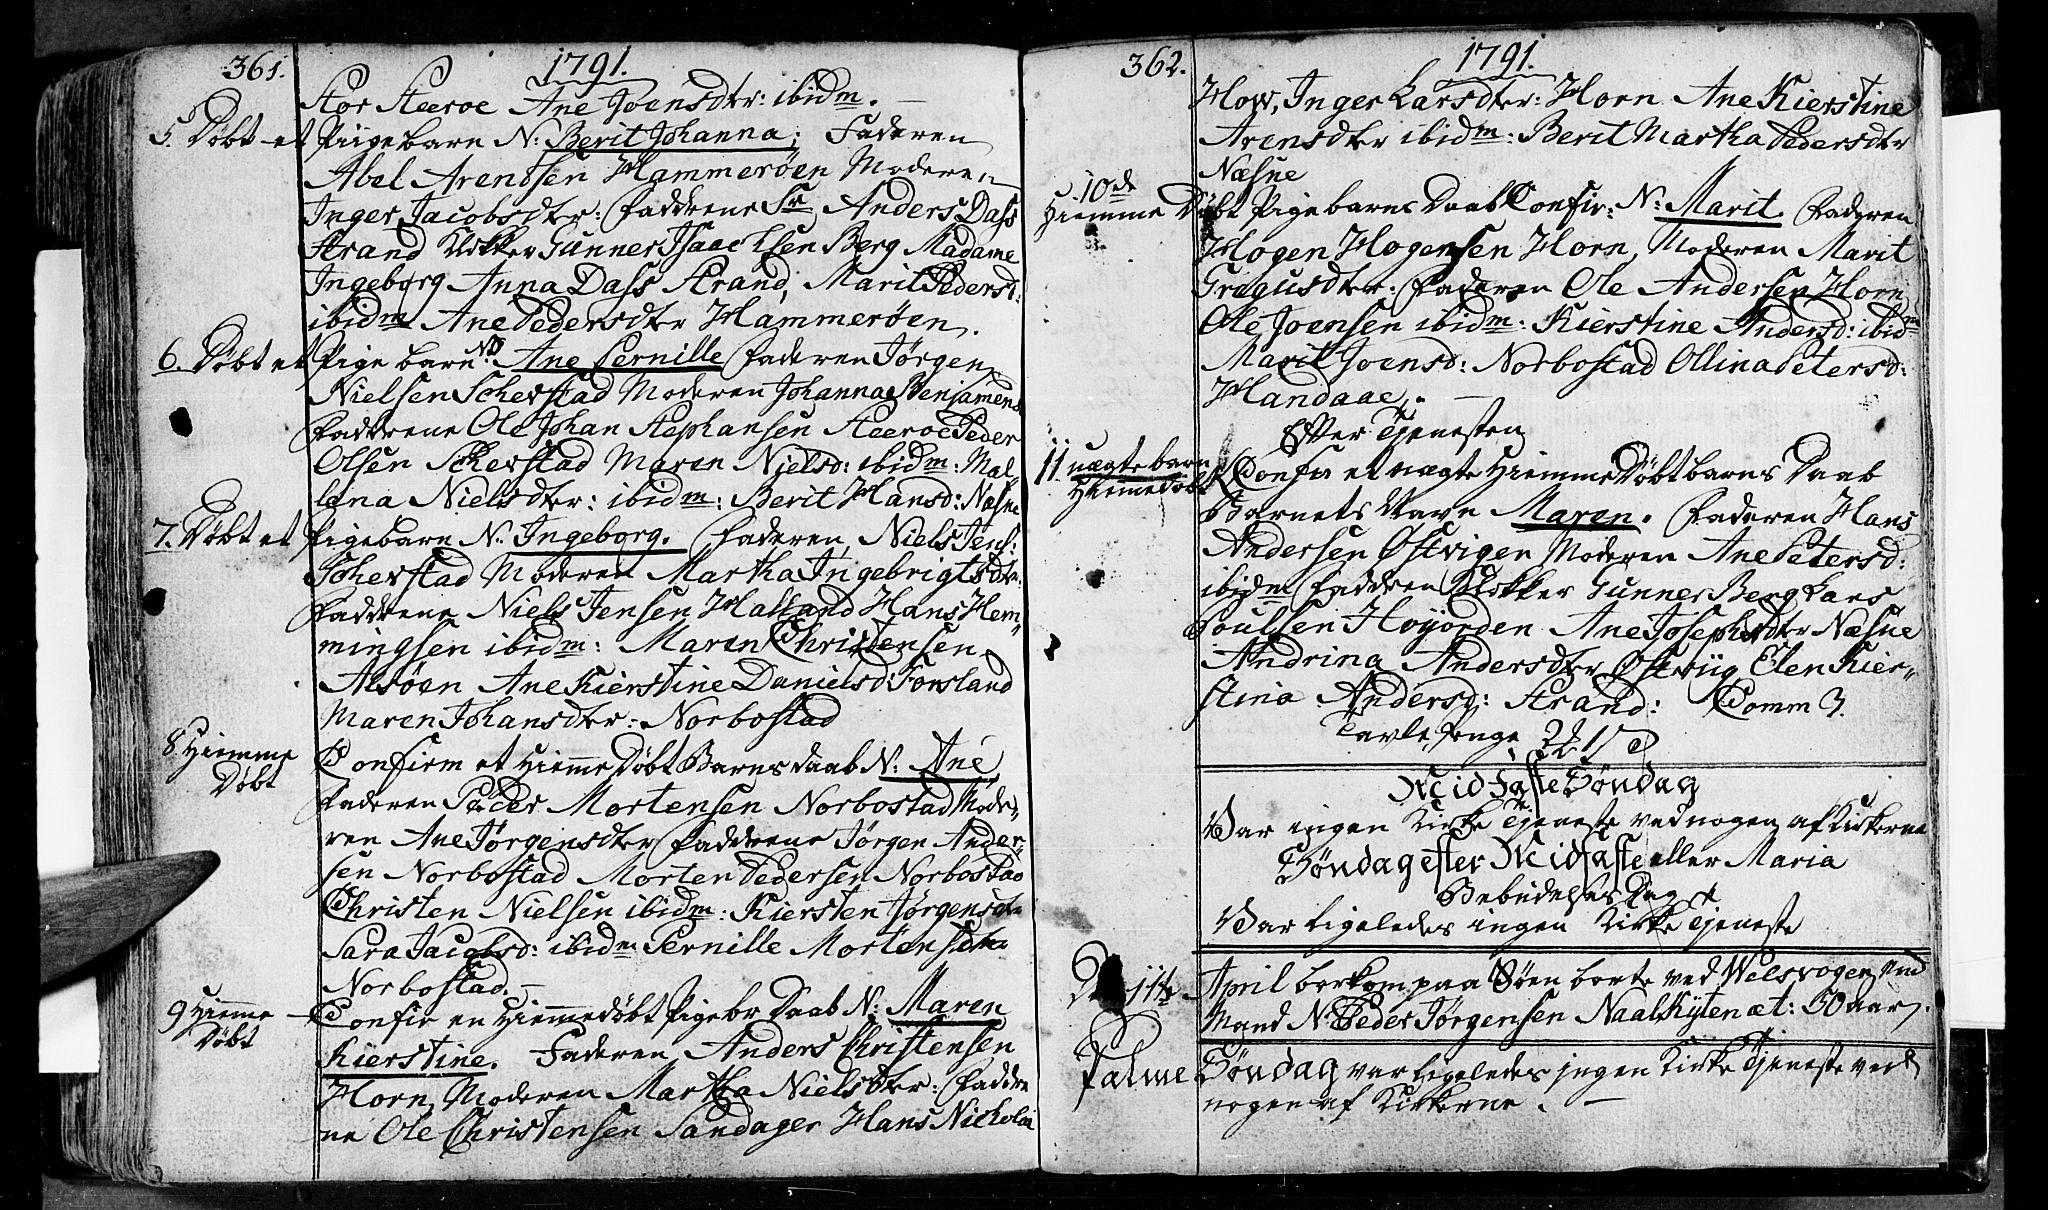 361. 1791.
Stor Steeroe Ane Joensdtr: ibidm. —
5. Døbt et Piigebarn N: Berit Johanna; Faderen
Abel Arentsen Hammerøen Moderen
Inger Jacobsdtr: Faddrene Sr Anders Dass
Strand Klokker Gunner Isaachsen Berg Madame
Ingeborg Anna Dass Strand, Marit Pedersd:
ibidm Ane Pedersdtr Hammerøen.
6. Døbt et Pige barn N: Ane Pernille Faderen Jørgen
Nielsen Scherstad Moderen Johanna Benjamens
Faddrene Ole Johan Stephansen Steeroe Peder
Olsen Scherstad Maren Nielsd: ibidm: Mal,,
lena Nielsdter: ibidm: Berit Hansd: Næsne
7. Døbt et Pigebarn N. Ingeborg. Faderen Niels Jens:
Scherstad Moderen Martha Ingebrigtsdtr:
Faddrene Niels Jensen Halland Hans Hem,,
mingsen ibidm: Maren Christensen
Alsøen Ane Kierstine Danielsd: Fonsland
Maren Johansdter: Norbostad
8. Hiemme Døbt
Confirm et Hiemme Døbt Barns daab N: Ane
Faderen Peder Mortensen Norbostad Mode,,
ren Ane Jørgensdter Faddrene Jørgen Ander,,
sen Norbostad Morten Pedersen Norbostad
Christen Nielsen ibidm: Kiersten Jørgensdr
Sara Jacobsd: ibidm Pernille Mortensdtr
Norbostad. —
9 Hieme Døbt
Confir en Hiemmedøbt Pigebr Daab N: Maren
Kierstine. Faderen Anders Christensen
Horn, Moderen Martha Nielsdter: Faddre
ne Ole Christensen Sandager Hans Nickolai
362. 1791.
How, Inger Larsdter: Horn Ane Kierstine
Arensdter ibidm: Berit Martha Pedersdtr
Næsne
10de Hiemme Døbt Pige barns Daab Confir: N: Marit. Faderen
Hogen Hogensen Horn, Moderen Marit
Gregusdter: Faderen Ole Andersen Horn
Ole Joensen ibidm: Kierstine Andersd: ibidm
Marit Joensd: Norbostad Ollina Petersd:
Handaae. —
Efter Tjenesten
11. uægte barn Hiemedøbt
Confir et uægte Hiemme Døbt barns Daab
Barnets Navn Maren. Faderen Hans
Andersen Østvigen Moderen Ane Petersd:
ibidm Faddren Klokker Gunner Berg Lars
Poulsen Høyorden Ane Josephsdter Næsne
Andrina Andersdter Østviig Elen Kier,,
stina Andersd: Strand: Comm 3.
Tavle penge
Mid Faste Søndag
Var ingen Kirke Tjeneste ved nogen af Kirkerne
Søndag efter Midfaste eller Maria
Bebudelses Dag
Var ligeledes ingen Kirke Tjeneste
D 11te April bortkom paa Søen borte ved Welsvogen
Mand N: Peder Jørgensen Naalskyten æt: 50 aar.
Palme Søndag var ligeledes ingen Kirke Tjeneste ved
nogen af Kirkerne. —